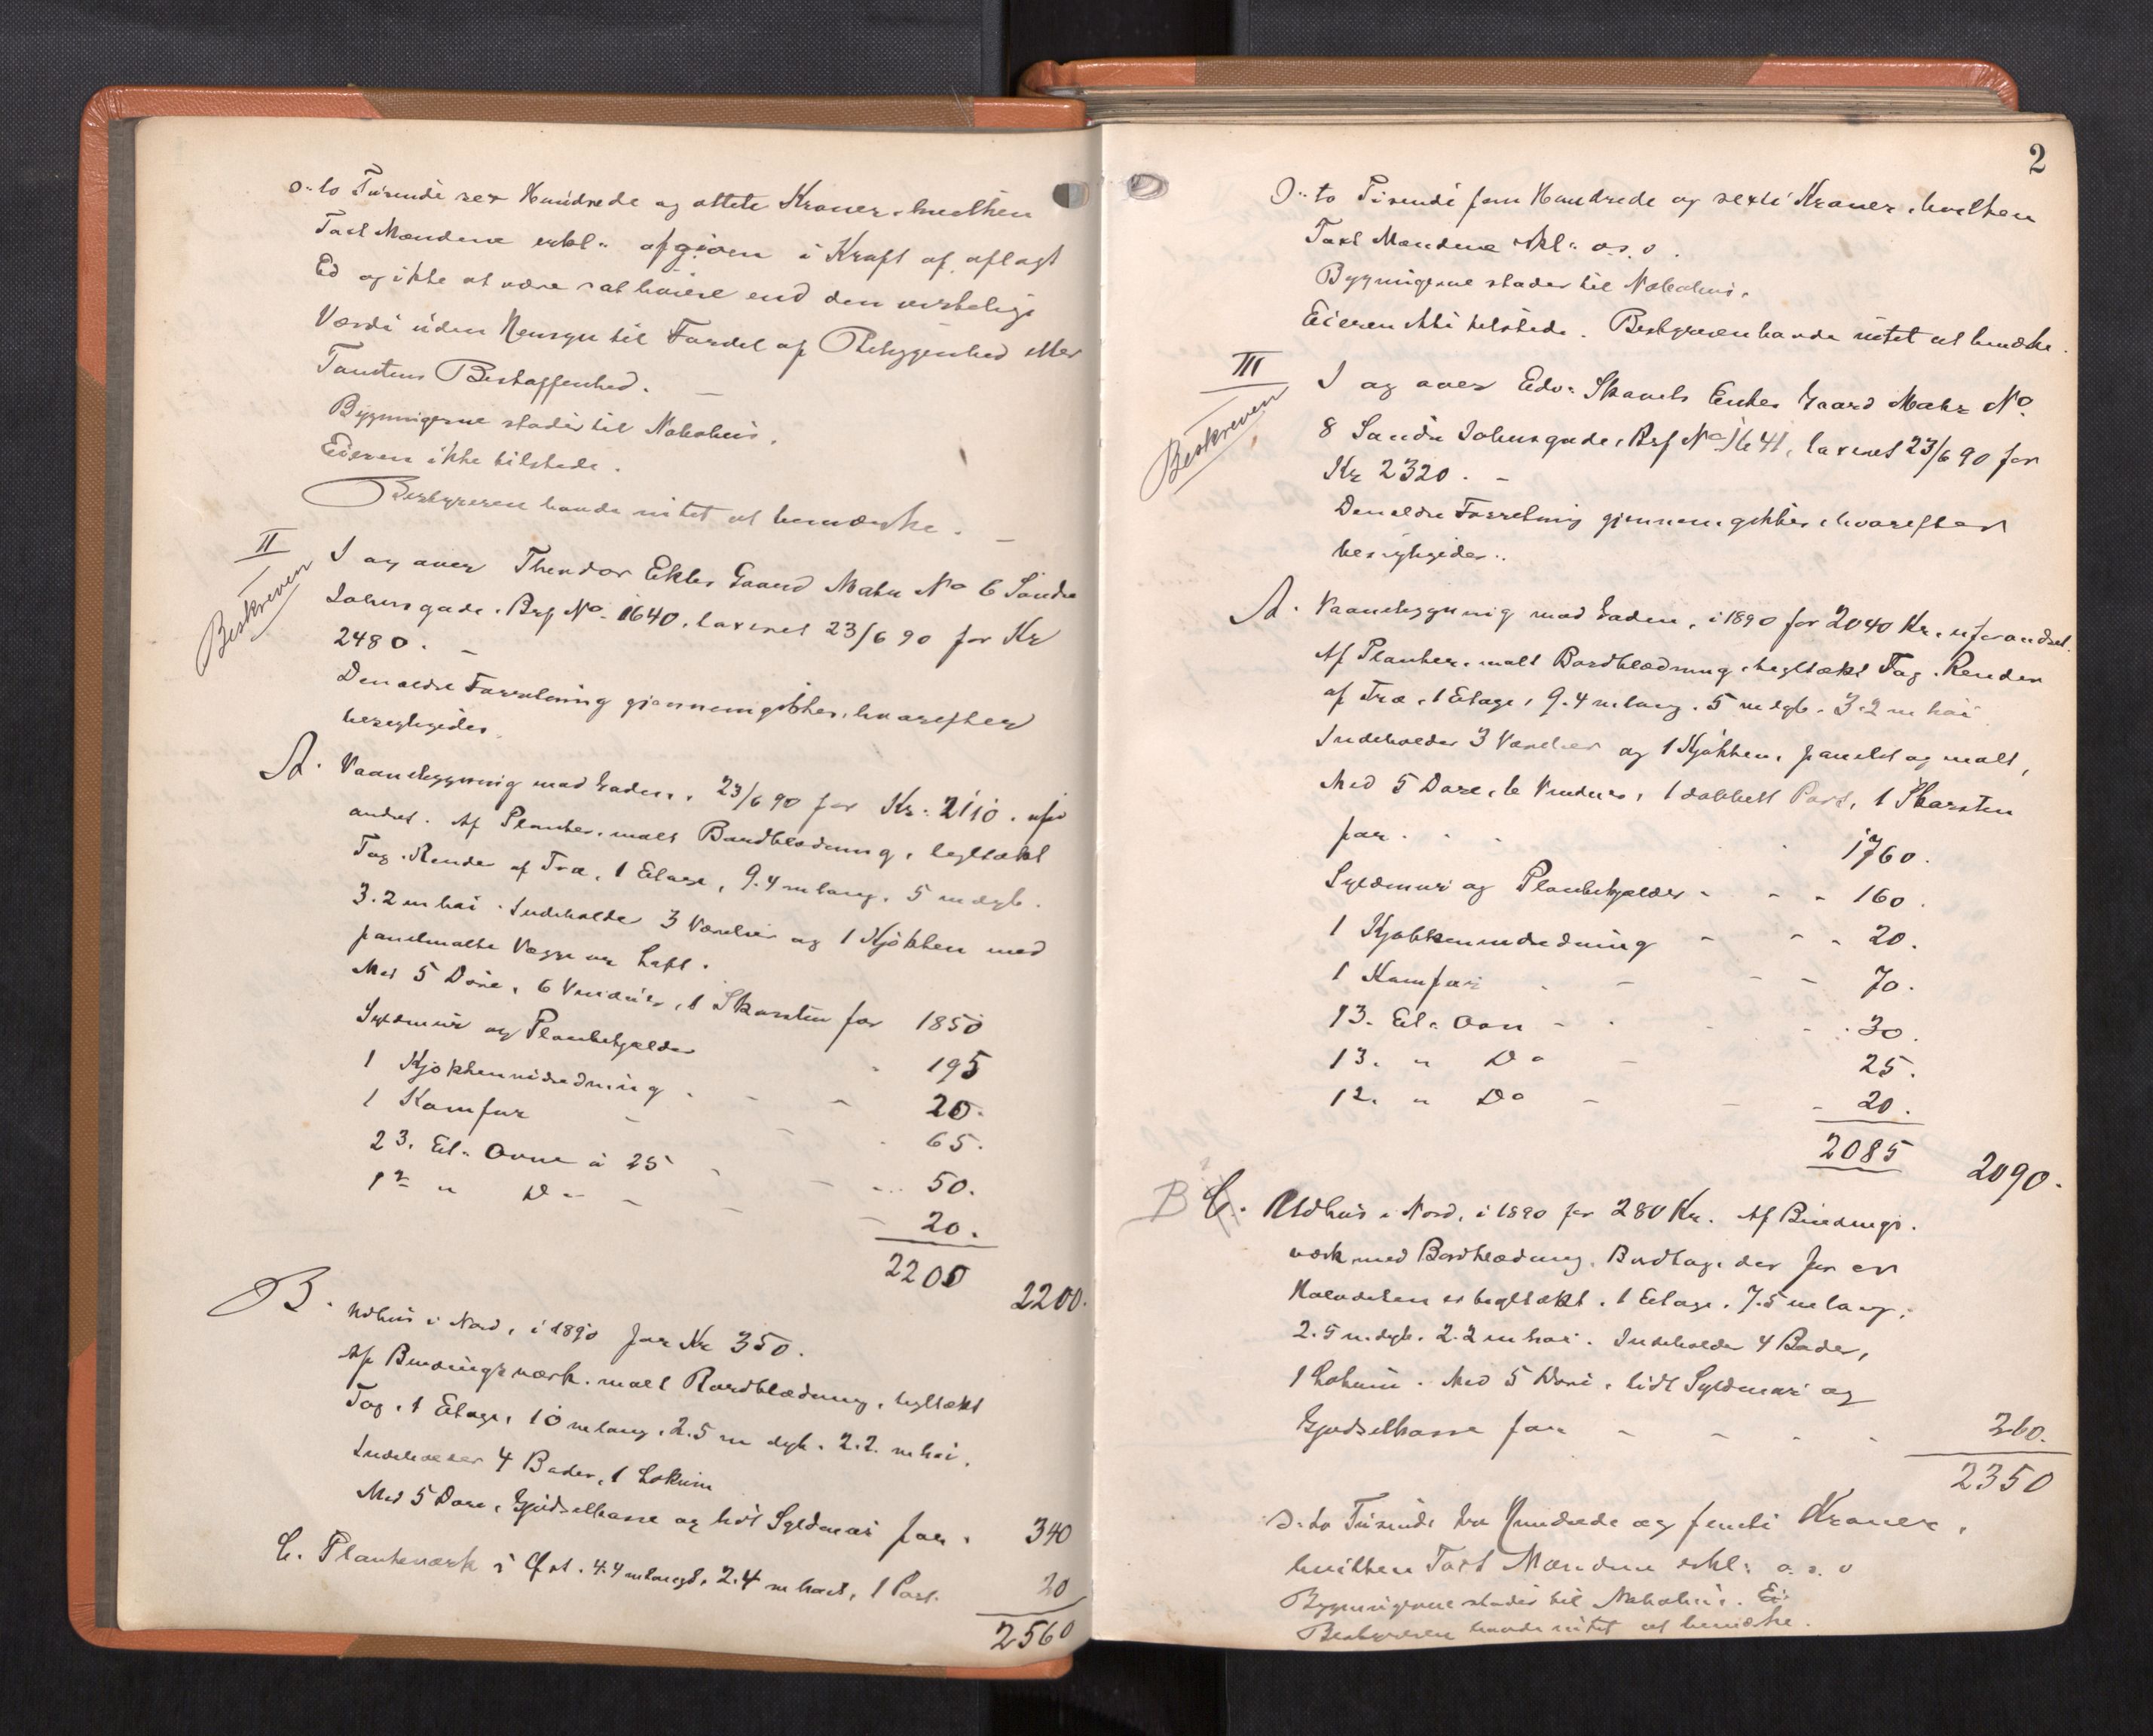 o: to Tusende sex Hundrede og ottete Kroner, hvilken
Taxt Mændene erkl: afgiven i Kraft af aflagt
Ed og ikke at være sat høiere end den virkelige
Værdi uden Hensyn til Fordel af Beliggenhed eller
Tomtens Beskaffenhed. –
Bygningerne støder til Nabohus.
Eieren ikke tilstede.
Bestyreren havde intet at bemærke. –
II
Beskreven
I og over Theodor Ekles Gaard Matr No 6 Søndre
Johnsgade, Brf No 1640, taxeret 23/6 90 for Kr
2480. –
Den ældre Forretning gjennemgikkes, hvorefter
besigtigedes
A. Vaanebygning mod Gaden, 23/6 90 for Kr: 2110. ufor
andret. Af Planker, malt Bordklædning, tegltækt
Tag, Render af Træ, 1 Etage, 9.4 m lang, 5 m dyb.
3.2 m høi. Indeholder 3 Værelser og 1 Kjøkken med
panelmalte Vægge og Loft.
Med 5 Døre, 6 Vinduer, 1 Skorsten for 1850
Syldmur og Plankekjælder 195
1 Kjøkkenindredning - - - 20.
1 Komfur - - - 65.
2 3. Et: Ovne à 25 - - - 50.
1 2 " Do - - - 20.
2200 2200.
B. Udhus i Nord, i 1890 for Kr 350.
Af Bindingsværk, malt Bordklædning, tegltækt
Tag, 1 Etage, 10 m lang, 2.5 m dyb. 2.2. m høi.
Indeholder 4 Boder, 1 Lokum
Med 5 Døre, Gjødselkasse og lidt Syldmur for. 340
C. Plankeværk i Øst. 4.4 m langt, 2.4 m høit, 1 Port. 20
2560
2
o: to Tusende fem Hundrede og sexti Kroner, hvilken
Taxt Mændene erkl: o.s.v.
Bygningerne støder til Nabohus.
Eieren ikke tilstede. Bestyreren havde intet at bemærke.
III
Beskreven
I og over Edv: Skavels Enkes Gaard Matr No
8 Søndre Johnsgade, Brf No 1641, taxeret 23/6 90 for
Kr 2320. –
Den ældre Forretning gjennemgikkes, hvorefter
besigtigedes:
A. Vaanebygning mod Gaden, i 1890 for 2040 Kr, uforandret.
Af Planker, malt Bordklædning, tegltækt Tag. Render
af Træ, 1 Etage, 9.4 m lang, 5 m dyb. 3.2 m høi
Indeholder 3 Værelser og 1 Kjøkken, panelet og malt,
Med 5 Døre, 6 Vinduer, 1 dobbelt Port, 1 Skorsten
for. - - 1760.
Syldmur og Plankekjælder - - - 160.
1 Kjøkkenindredning - - - 20.
1 Komfur - - - 70.
1 3. Et: Ovn - - - 30.
1 3. " Do - 25.
1 2. " Do - - - 20.
2085 2090.
B C. Udhus i Nord, i 1890 for 280 Kr. Af Bindings.
værk med Bordklædning. Bordtag, der for en
Halvdelen er tegltækt. 1 Etage. 7.5 m lang,
2.5 m. dyb. 2.2 m høi. Indeholder 4 Boder,
1 Lokum. Med 5 Døre, lidt Syldmur og
Gjødselkasse for. - - - - 260.
2350
o: to Tusende tre Hundrede og femti Kroner,
hvilken Taxt Mændene erkl: o.s.v
Bygningerne støder til Nabohus. Ei:
Bestyreren havde intet at bemærke.